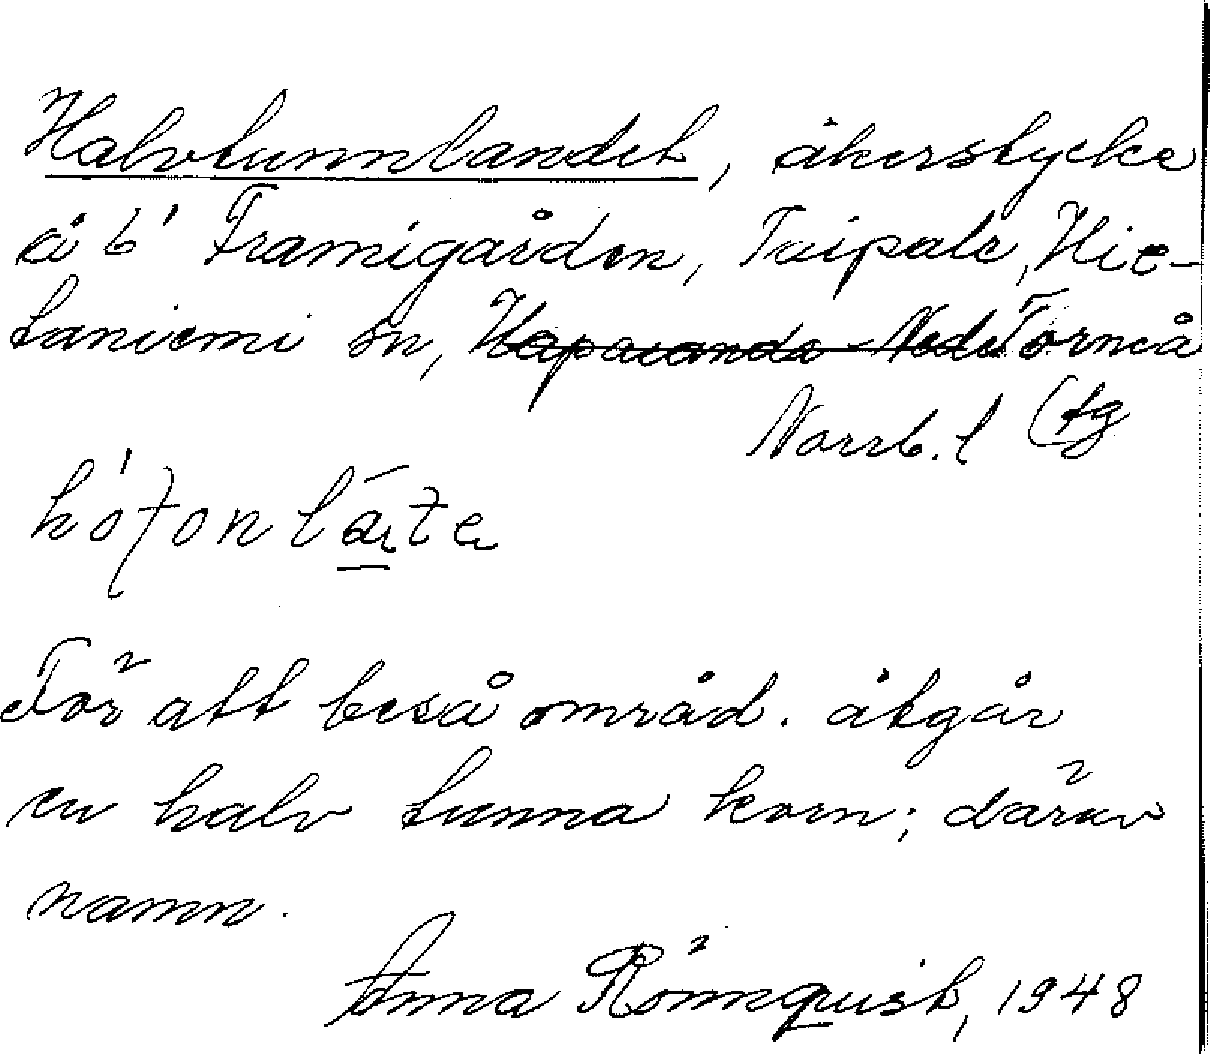 Halvtunnlandet, åkerstycke
å 6¹ Framigården, Taipale, Hie-
taniemi sn, Torneå
Norrb. l
För att beså områd. åtgår
en halv tunna korn; därav
namn.
Anna Rönnquist, 1948